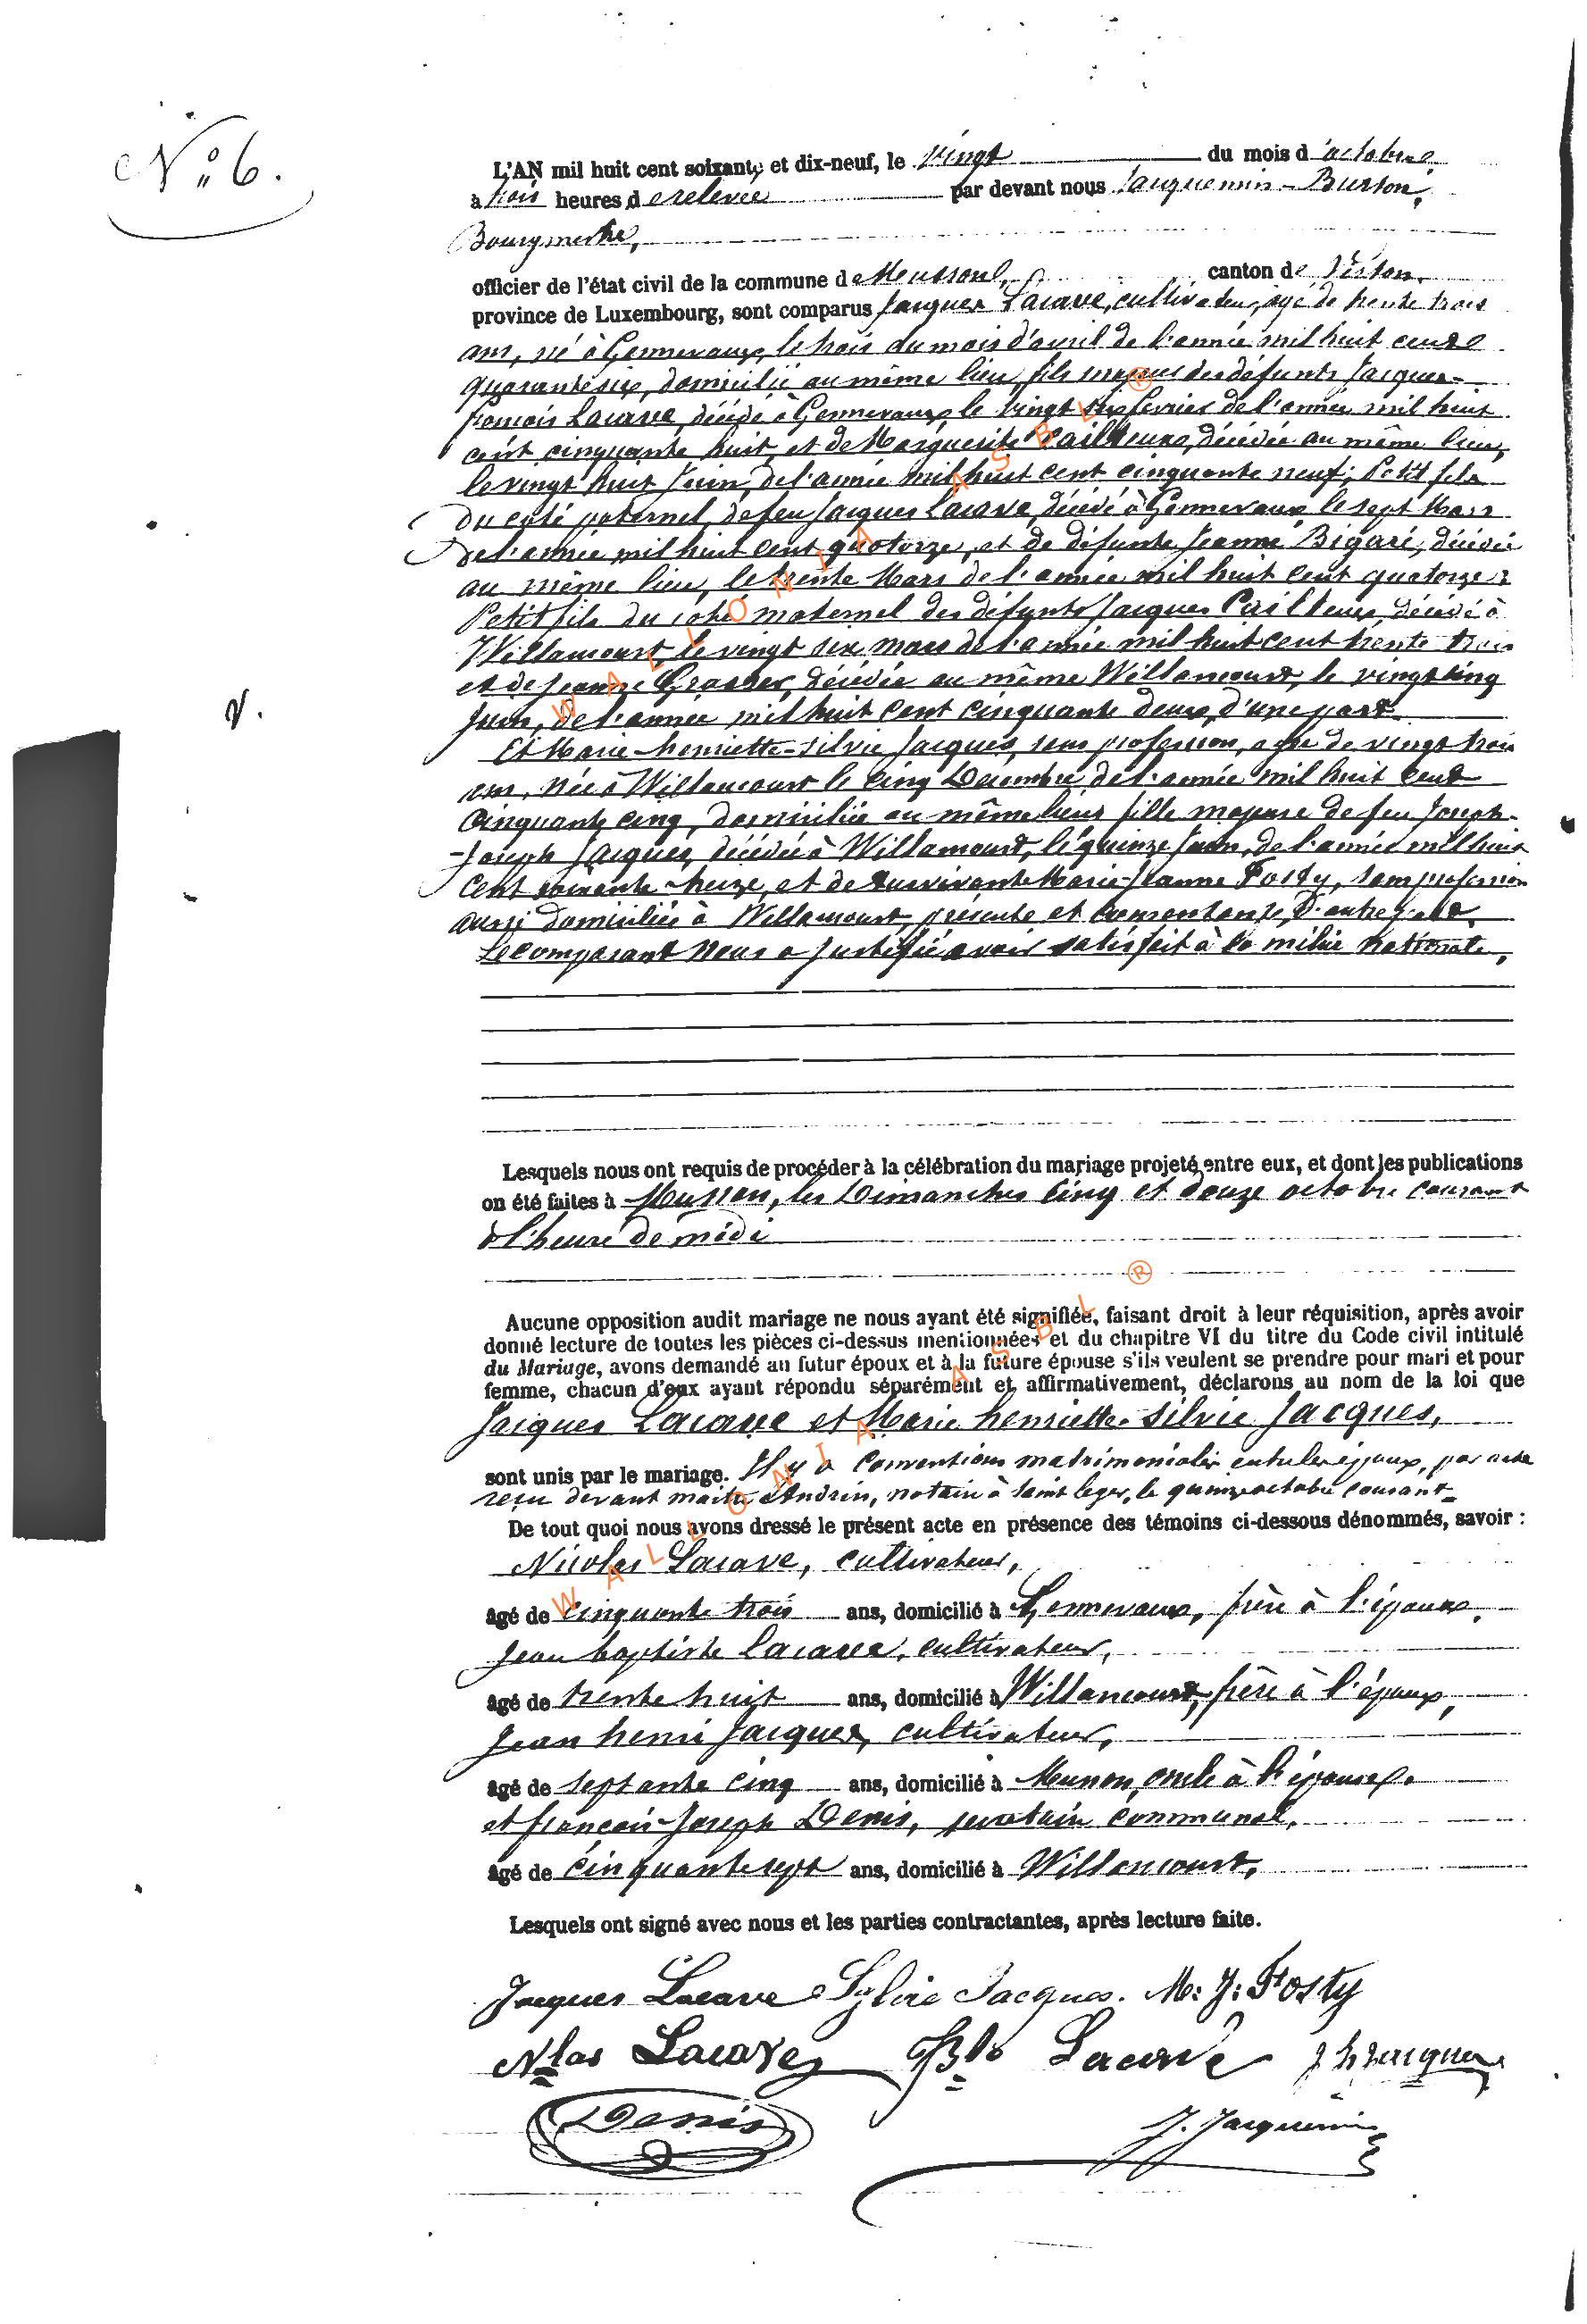 N° 6.
L'AN mil huit cent soixante et dix-neuf, le vingt du mois d'octobre
à trois heures de relevée par devant nous Jacquemin-Burton,
Bourgmestre,
officier de l'état civil de la commune de Musson, canton de Virton,
province de Luxembourg, sont comparus Jacques Lacave, cultivateur, âgé de trente trois
ans, né à Gennevaux, le trois du mois d'avril de l'année mil huit cent
quarante six, domicilié au même lieu, fils majeur des défunts Jacques-
françois Lacave, décédé à Gennevaux le vingt six fevrier de l'année mil huit
cent cinquante huit, et de Marguerite Cailteux, décédée au même lieu,
le vingt huit Juin, de l'année mil huit cent cinquante neuf; Petit fils
du coté paternel, de feu Jacques Lacave, décédé à Gennevaux le sept Mars
de l'année mil huit cent quatorze, et de défunte Jeanne Bigaré, décédée
au même lieu, le trente Mars de l'année mil huit cent quatorze;
Petit fils du coté maternel des défunts Jacques Cailteux, décédé à
Willancourt, le vingt six mars de l'année mil huit cent trente trois
et de Jeanne décédée au même Willancourt, le vingt cinq
Juin, de l'année mil huit cent cinquante deux, d'une part.
Et Marie-henriette-silvie Jacques, sans profession, agée de vingt trois
ans, née à Willancourt le cinq Décembre de l'année mil huit cent
cinquante cinq, domiciliée au même lieu, fille majeure de feu Joseph-
-Joseph Jacques, décédé à Willancourt, le quinze Juin, de l'année mil huit
cent soixante-treize, et de survivante Marie-Jeanne Fosty, sans profession
aussi domiciliée à Willancourt, présente et consentante, d'autre part.
Le comparant nous a justifié avoir satisfait à la milice nationale,
Lesquels nous ont requis de procéder à la célébration du mariage projeté entre eux, et dont les publications
on été faites à Musson, les Dimanches cinq et douze octobre courant
à l'heure de midi
Aucune opposition audit mariage ne nous ayant été signifiée, faisant droit à leur réquisition, après avoir
donné lecture de toutes les pièces ci-dessus mentionnées et du chapitre VI du titre du Code civil intitulé
du Mariage, avons demandé au futur époux et à la future épouse s'ils veulent se prendre pour mari et pour
femme, chacun d'eux ayant répondu séparément et affirmativement, déclarons au nom de la loi que
Jacques Lacave et Marie henriette silvie Jacques,
sont unis par le mariage. Il y a conventions matrimoniales entre les époux, par acte
reçu devant maître Andrin, notaire à Saint leger, le quinze octobre courant
De tout quoi nous avons dressé le présent acte en présence des témoins ci-dessous dénommés, savoir :
Nicolas Lacave, cultivateur,
âgé de cinquante trois ans, domicilié à Gennevaux, frère à l'époux,
Jean baptiste Lacave, cultivateur,
âgé de trente huit ans, domicilié à Willancourt, frère à l'époux,
Jean henri Jacques, cultivateur,
âgé de septante cinq ans, domicilié à Musson, oncle à l'épouse,
et françois-Joseph Denis, secrétaire communal,
âgé de cinquante sept ans, domicilié à Willancourt,
Lesquels ont signé avec nous et les parties contractantes, après lecture faite.
Jacques Lacave Sylvie Jacques. M: J: Fosty
Nlas Lacave JBte Lacave J h Jacques
Denis J. Jacquemin
WALLONIA ASBL ®
WALLONIA ASBL ®